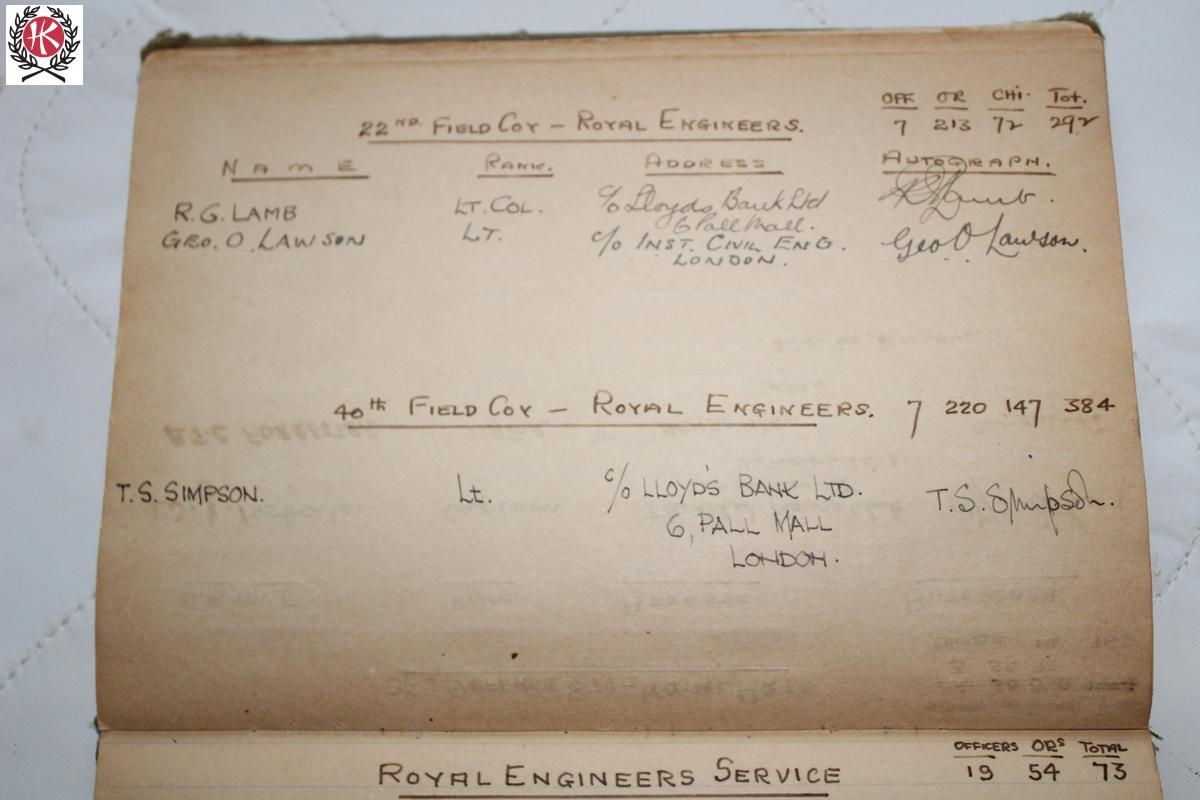 HK
OFF OR CHI. Tot.
22ND. FIELD COY – ROYAL ENGINEERS. 7 213 72 292
NAME RANK. ADDRESS AUTOGRAPH.
R.G. LAMB LT. COL. c/o Lloyds Bank Ltd RGLamb.
6 Pall Mall.
GEO. O. LAWSON LT. c/o INST. CIVIL ENG. Geo O. Lawson.
LONDON.
40th FIELD COY – ROYAL ENGINEERS. 7 220 147 384
T.S. SIMPSON. Lt. c/o LLOYD'S BANK LTD. T.S. Simpson.
6, PALL MALL
LONDON.
OFFICERS ORS TOTAL
ROYAL ENGINEERS SERVICE 19 54 73